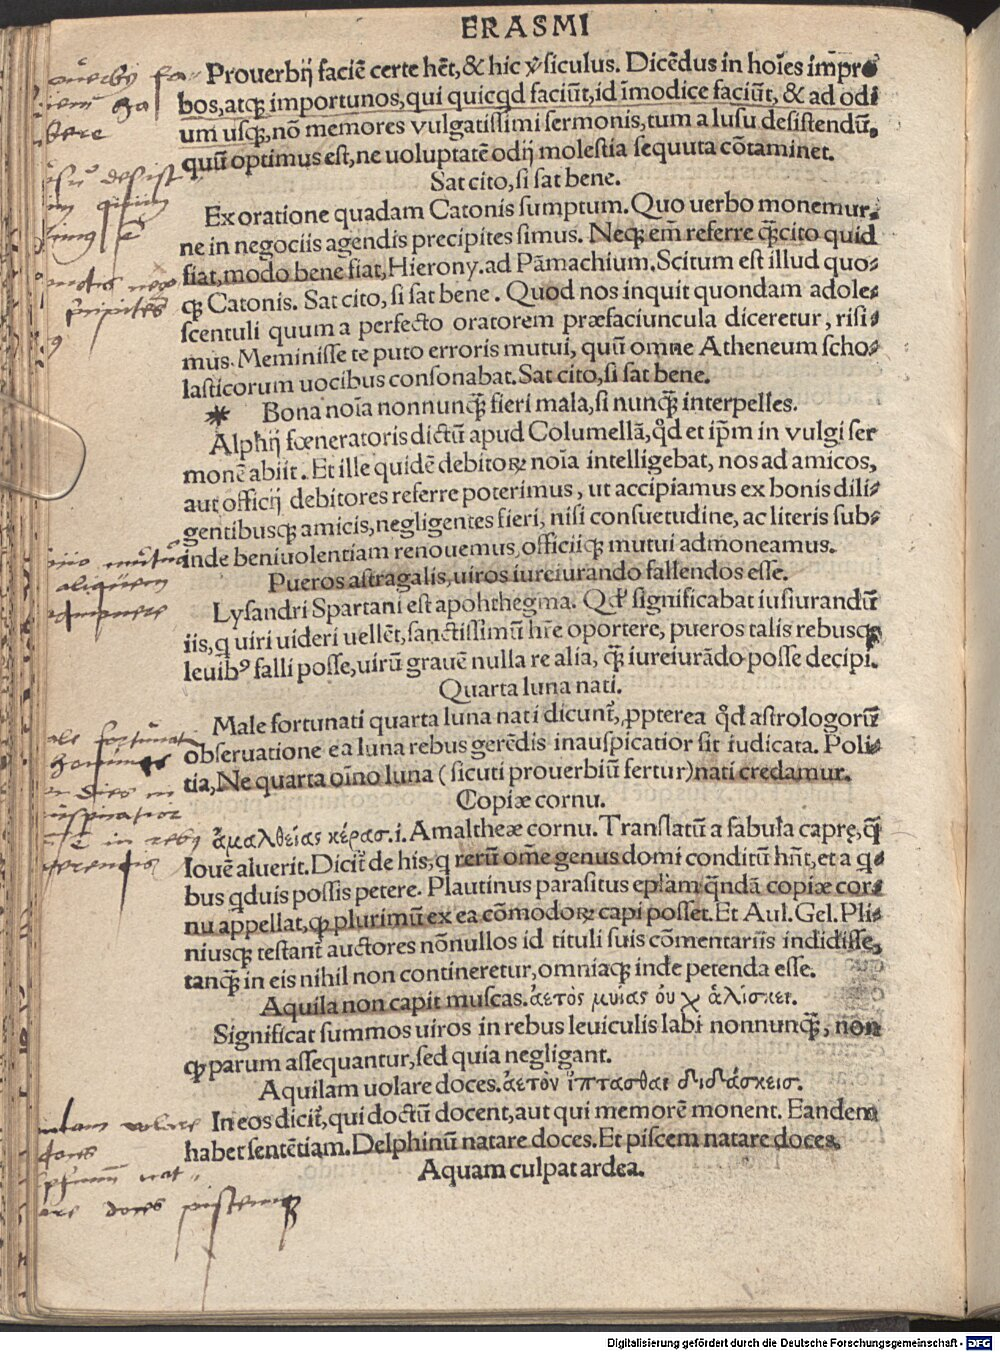 ERASMI
Prouerbij faciē certe hēt,& hic v̾siculus. Dicēdus in hoīes impro
bos,atqꝫ importunos,qui quicqd faciūt,id īmodice faciūt, & ad odi
um usqꝫ,nō memores vulgatissimi sermonis,tum a lusu desistendū,
quū optimus est,ne uoluptatē odij molestia sequuta cōtaminet.
Sat cito,si sat bene.
Ex oratione quadam Catonis sumptum. Quo uerbo monemur,
ne in negociis agendis precipites simus. Neqꝫ em̄ referre q̄ꝫ cito quid
fiat,modo bene fiat,Hierony.ad Pāmachium.Scitum est illud quo-
qꝫ Catonis. Sat cito, si sat bene . Quod nos inquit quondam adole-
scentuli quum a perfecto oratorem præfaciuncula diceretur , risi-
mus. Meminisse te puto erroris mutui, quū omne Atheneum scho-
lasticorum uocibus consonabat.Sat cito,si sat bene.
* Bona noīa nonnunq̄ꝫ fieri mala,si nunq̄ꝫ interpelles.
Alphij fœneratoris dictū apud Columellā,qd̾ et ip̄m in vulgi ser
monē abiit . Et ille quidē debitoꝝ noīa intelligebat, nos ad amicos,
aut officij debitores referre poterimus , ut accipiamus ex bonis dili-
gentibusqꝫ amicis,negligentes fieri, nisi consuetudine, ac literis sub-
inde beniuolentiam renouemus,officiiqꝫ mutui admoneamus.
Pueros astragalis,uiros iureiurando fallendos esse.
Lysandri Spartani est apohthegma. Qd̾ significabat iusiurandū
iis,q uiri uideri uellēt,sanctissimū hr̄e oportere, pueros talis rebusqꝫ
leuibꝰ falli posse,uirū grauē nulla re alia, q̄ꝫ iureiurādo posse decipi.
Quarta luna nati.
Male fortunati quarta luna nati dicunt̾, ꝓpterea qd̾ astrologorū
obseruatione ea luna rebus gerēdis inauspicatior sit iudicata. Poli-
tia,Ne quarta oīno luna ( sicuti prouerbiū fertur)nati credamur.
Copiæ cornu.
ἀμαλθείας κέρασ.i. Amaltheæ cornu. Translatū a fabula caprę,q̄
Iouē aluerit.Dicit̾ de his,q rerū om̄e genus domi conditū hn̄t,et a q-
bus qduis possis petere. Plautinus parasitus epl̄am q̄ndā copiæ cor-
nu appellat,ꝙ plurimū ex ea cōmodoꝝ capi posset.Et Aul.Gel. Pli-
niusqꝫ testant̾ auctores nōnullos id tituli suis cōmentariis indidisse,
tanq̄ꝫ in eis nihil non contineretur,omniaqꝫ inde petenda esse.
Aquila non capit muscas.ἀετὸς μυιας ὀυ χ ἁλίσκει.
Significat summos uiros in rebus leuiculis labi nonnunq̄ꝫ, non
ꝙ parum assequantur,sed quia negligant.
Aquilam uolare doces.ἀετὸν ἵπτασθαι διδάσκεισ.
In eos dicit̾, qui doctū docent,aut qui memorē monent. Eandem
habet sentētiam.Delphinū natare doces.Et piscem natare doces.
Aquam culpat ardea.
mutuā
aliquem
admonere
male fortunat
homines
Dies in
auspicatior
in rebꝫ
gerendis
volare
doces
nat
are doces piscemqꝫ
Digitalisierung gefördert durch die Deutsche Forschungsgemeinschaft - DFG